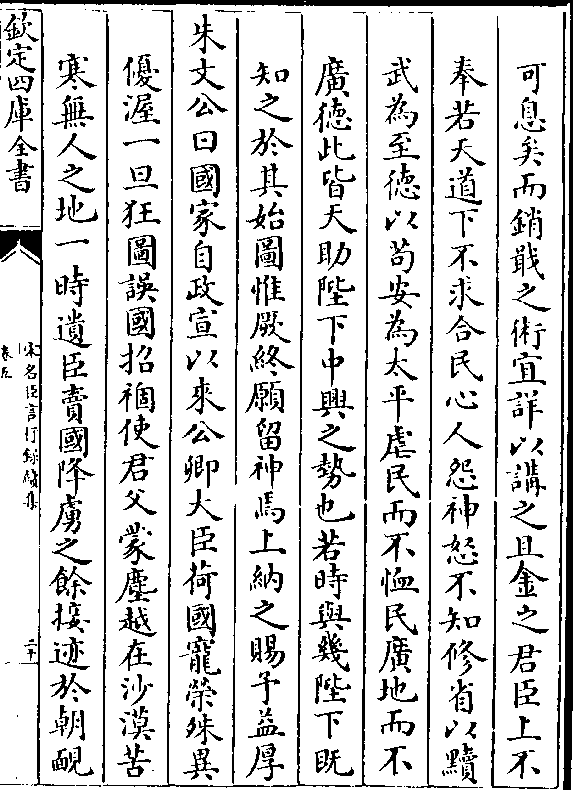 可息矣而銷戢之術宜詳以講之且金之君臣上不
奉若天道下不求合民心人怨神怒不知修省以黷
武為至德以苟安為太平虐民而不恤民廣地而不
廣德此皆天助陛下中興之勢也若時與幾陛下既
知之於其始圖惟厥終願留神焉上納之賜予益厚
朱文公曰國家自政宣以來公卿大臣荷國寵榮殊異
優渥一旦狂圖誤國招禍使君父蒙塵越在沙漠苦
寒無人之地一時遺臣賣國降虜之餘接迹於朝靦
欽定四庫全書
宋名臣言行録續集
卷五
二十一